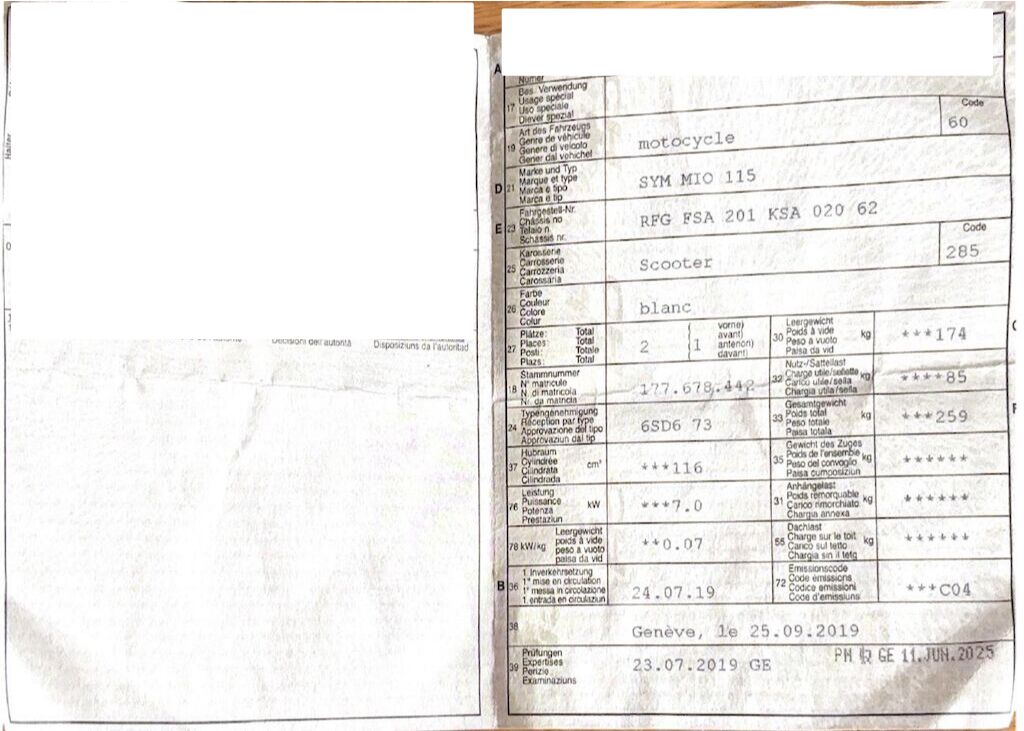 Halter
Decisioni dell'autorità
Disposiziuns da l'autoritad
A
Numer
17 Bes. Verwendung
Usage spécial
Uso speciale
Diever spezial
19 Art des Fahrzeugs
Genre de véhicule
Genere di veicolo
Gener dal vehichel
motocycle
Code
60
D 21 Marke und Typ
Marque et type
Marca e tipo
Marca e tip
SYM MIO 115
E 23 Fahrgestell-Nr.
Châssis no
Telaio n.
Schassis nr.
RFG FSA 201 KSA 020 62
25 Karosserie
Carrosserie
Carrozzeria
Carossaria
Scooter
Code
285
26 Farbe
Couleur
Colore
Colur
blanc
27 Plätze: Total
Places: Total
Posti: Totale
Plazs: Total
2
( vorne)
avant)
anteriori)
davant)
1
30 Leergewicht
Poids à vide
Peso a vuoto
Paisa da vid
kg
***174
18 Stammnummer
N° matricule
N. di matricola
Nr. da matricla
177.678.442
32 Nutz-/Sattellast
Charge utile/sellette
Carico utile/sella
Chargia utila/sella
kg
****85
24 Typengenehmigung
Réception par type
Approvazione del tipo
Approvaziun dal tip
6SD6 73
33 Gesamtgewicht
Poids total
Peso totale
Paisa totala
kg
***259
37 Hubraum
Cylindrée
Cilindrata
Cilindrada
cm³
***116
35 Gewicht des Zuges
Poids de l'ensemble
Peso del convoglio
Paisa cumposiziun
kg
******
76 Leistung
Puissance
Potenza
Prestaziun
kW
***7.0
31 Anhängelast
Poids remorquable
Carico rimorchiato
Chargia annexa
kg
******
78 kW/kg
Leergewicht
poids à vide
peso a vuoto
paisa da vid
**0.07
55 Dachlast
Charge sur le toit
Carico sul tetto
Chargia sin il tetg
kg
******
B 36 1. Inverkehrsetzung
1re mise en circulation
1a messa in circolazione
1. entrada en circulaziun
24.07.19
72 Emissionscode
Code émissions
Codice emissioni
Code d'emissiuns
***C04
38
Genève, le 25.09.2019
39 Prüfungen
Expertises
Perizie
Examinaziuns
23.07.2019 GE
PM GE 11.JUN.2025